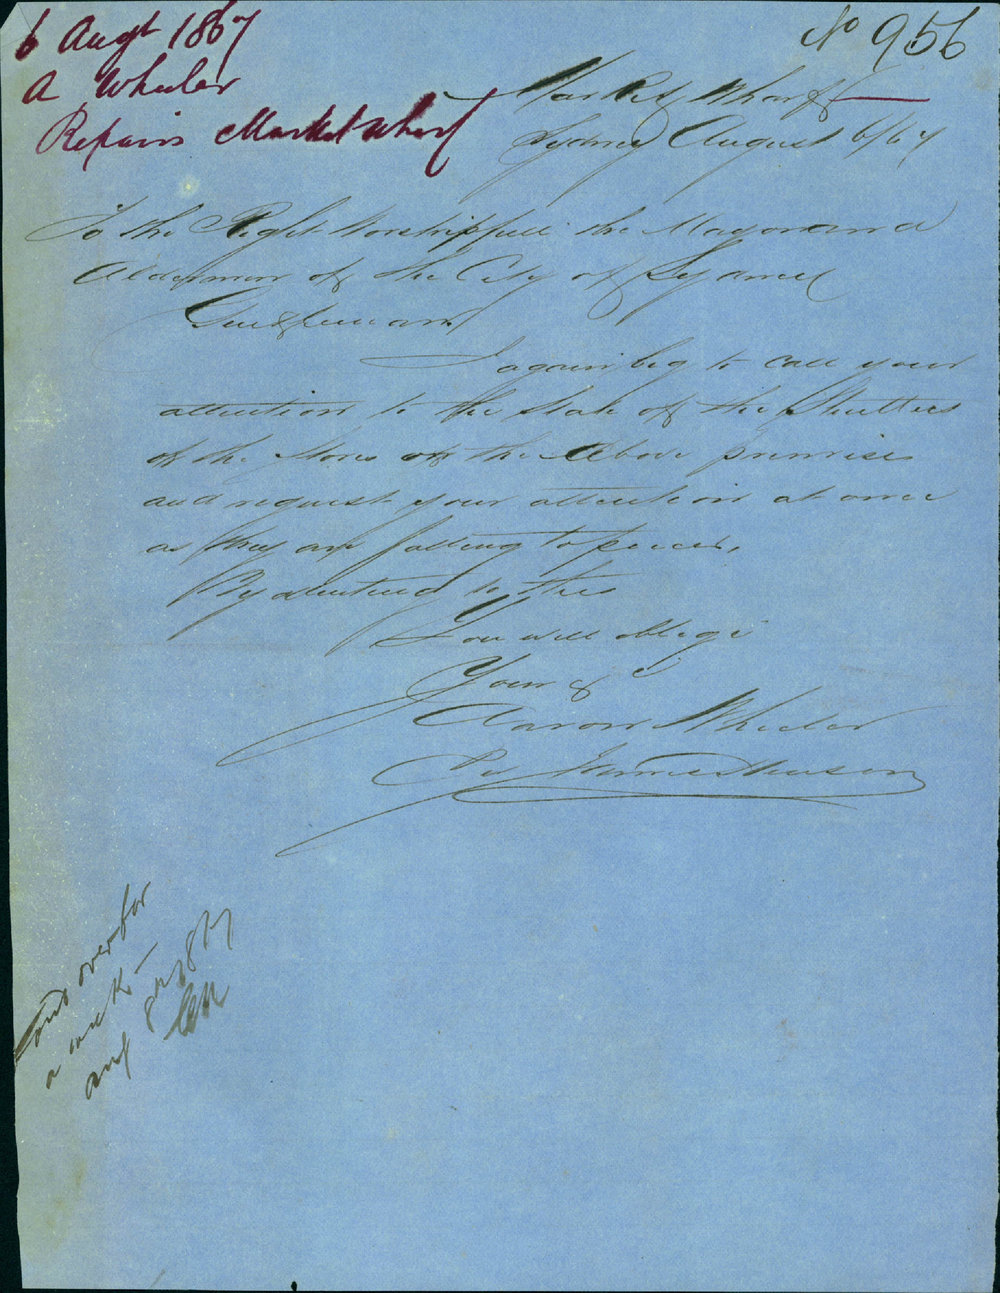 6 Augt 1867
A Wheeler
Repairs Market Wharf
No 956
Market Wharf
Sydney August 6/67
To the Right Worshipfull the Mayor and
Aldermen of the City of Sydney
Gentlemen
I again beg to call your
attention to the State of the Shutters
of the Stores of the Above premises
and request your attention at once
as they are falling to pieces,
By attending to this
You will oblige
Yours &c
Aaron Wheeler
Per James
over for
a week
Aug 8th 1867